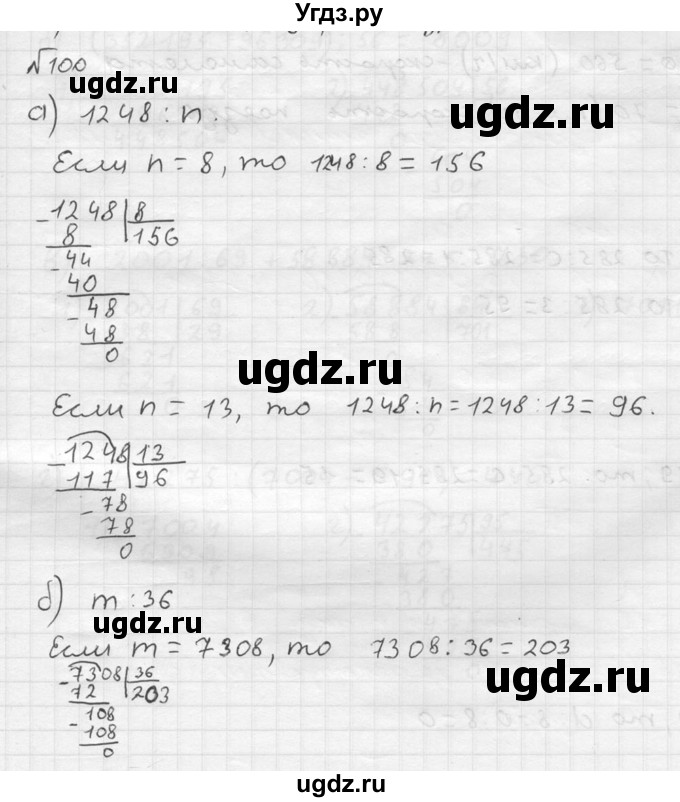 Угдз.ру
№100
ugdz.ru
ugdz.ru
а) 1248 : n.
Если n = 8, то 1248 : 8 = 156
- 1248 | 8
8 | 156
- 44
40
- 48
48
0
ugdz.ru
Если n = 13, то 1248 : n = 1248 : 13 = 96.
- 1248 | 13
117 | 96
- 78
78
0
ugdz.ru
б) m : 36
ugdz.ru
Если m = 7308, то 7308 : 36 = 203
- 7308 | 36
72 | 203
- 108
108
0
ugdz.ru
ugdz.ru
ugdz.ru